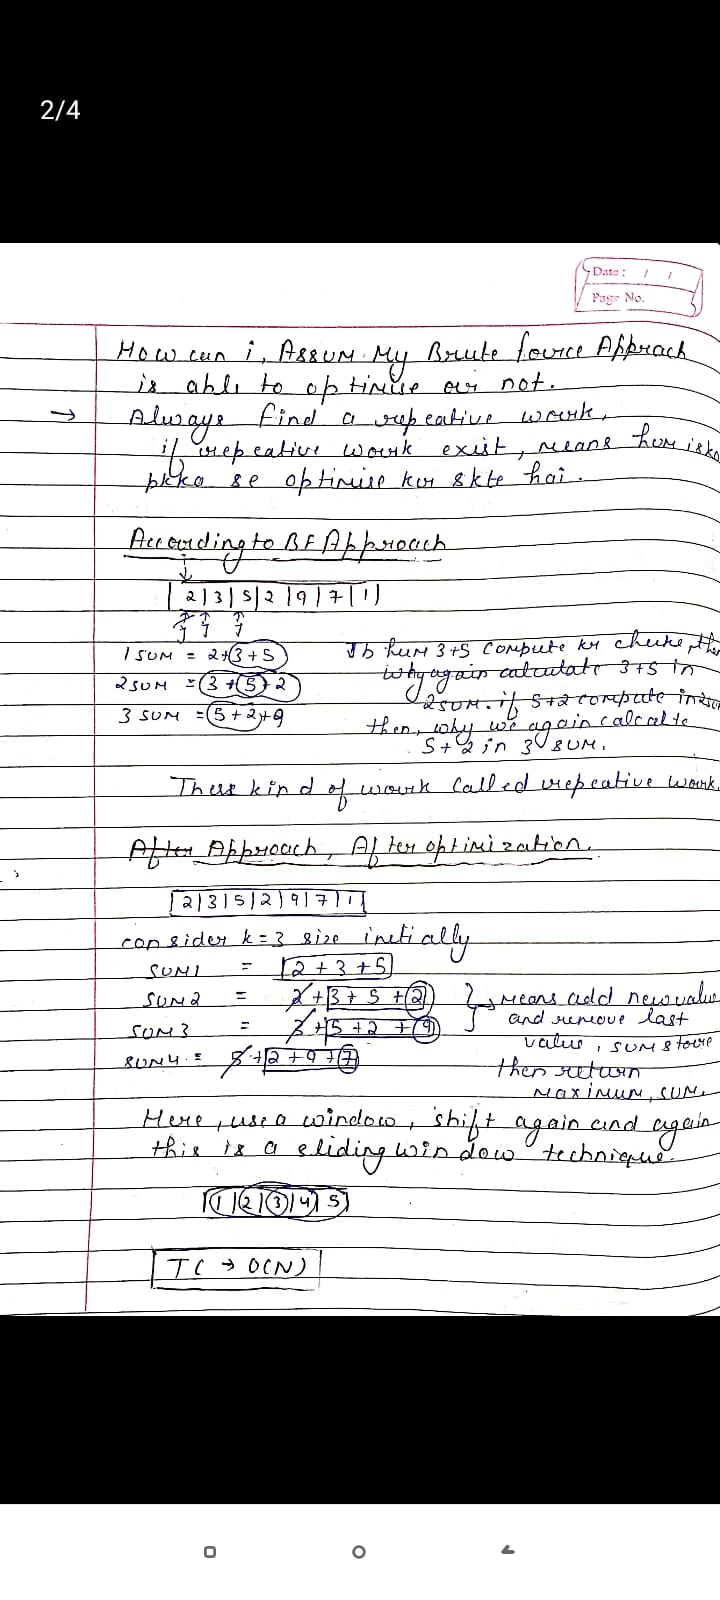 2/4
Date: / /
Page No.
How can i, Assum My Brute fource Apprach
is able to optimise our not.
→ Always find a repeative wourk,
if repeative wourk exist, means hum isko
pkka se optimise kur skte hai.
According to BF Approach
↓
|2|3|5|2|9|7|1|
1 SUM = 2+3+5
Jb hum 3+5 compute kr chuke, then
2 SUM = 3+5+2
why again calculate 3+5 in
2SUM. if 5+2 compute in 2SUM
3 SUM = 5+2+9
then, why we again calcalte
5+2 in 3 SUM.
These kind of wourk Called repeative wourk.
After Approach, After optimization.
|2|3|5|2|9|7|1|
consider k=3 size inetially
SUM1 = 2+3+5
SUM2 = 2+3+5+2
means add new value
SUM3 = 3+5+2+9
and remove last
value, sum stoure
SUM4 = 5+2+9+7
then return
maximum, sum.
Here, use a window, shift again and again
this is a sliding window technique.
|1|2|3|4|5|
TC → O(N)